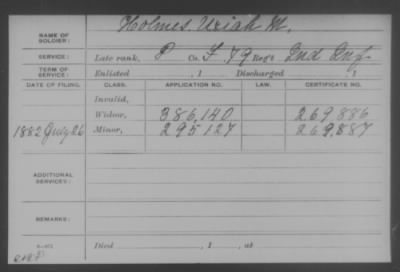 Holmes, Uriah M.
NAME OF
SOLDIER:
SERVICE: Late rank, P Co. F. 79 Reg't Ind Inf
TERM OF
SERVICE: Enlisted , 1 Discharged , 1
DATE OF FILING. CLASS. APPLICATION NO. LAW. CERTIFICATE NO.
Invalid,
Widow, 386,140 269,886
1882 July 26 Minor, 295,127 269,887
ADDITIONAL
SERVICES:
REMARKS:
Died , 1 , at